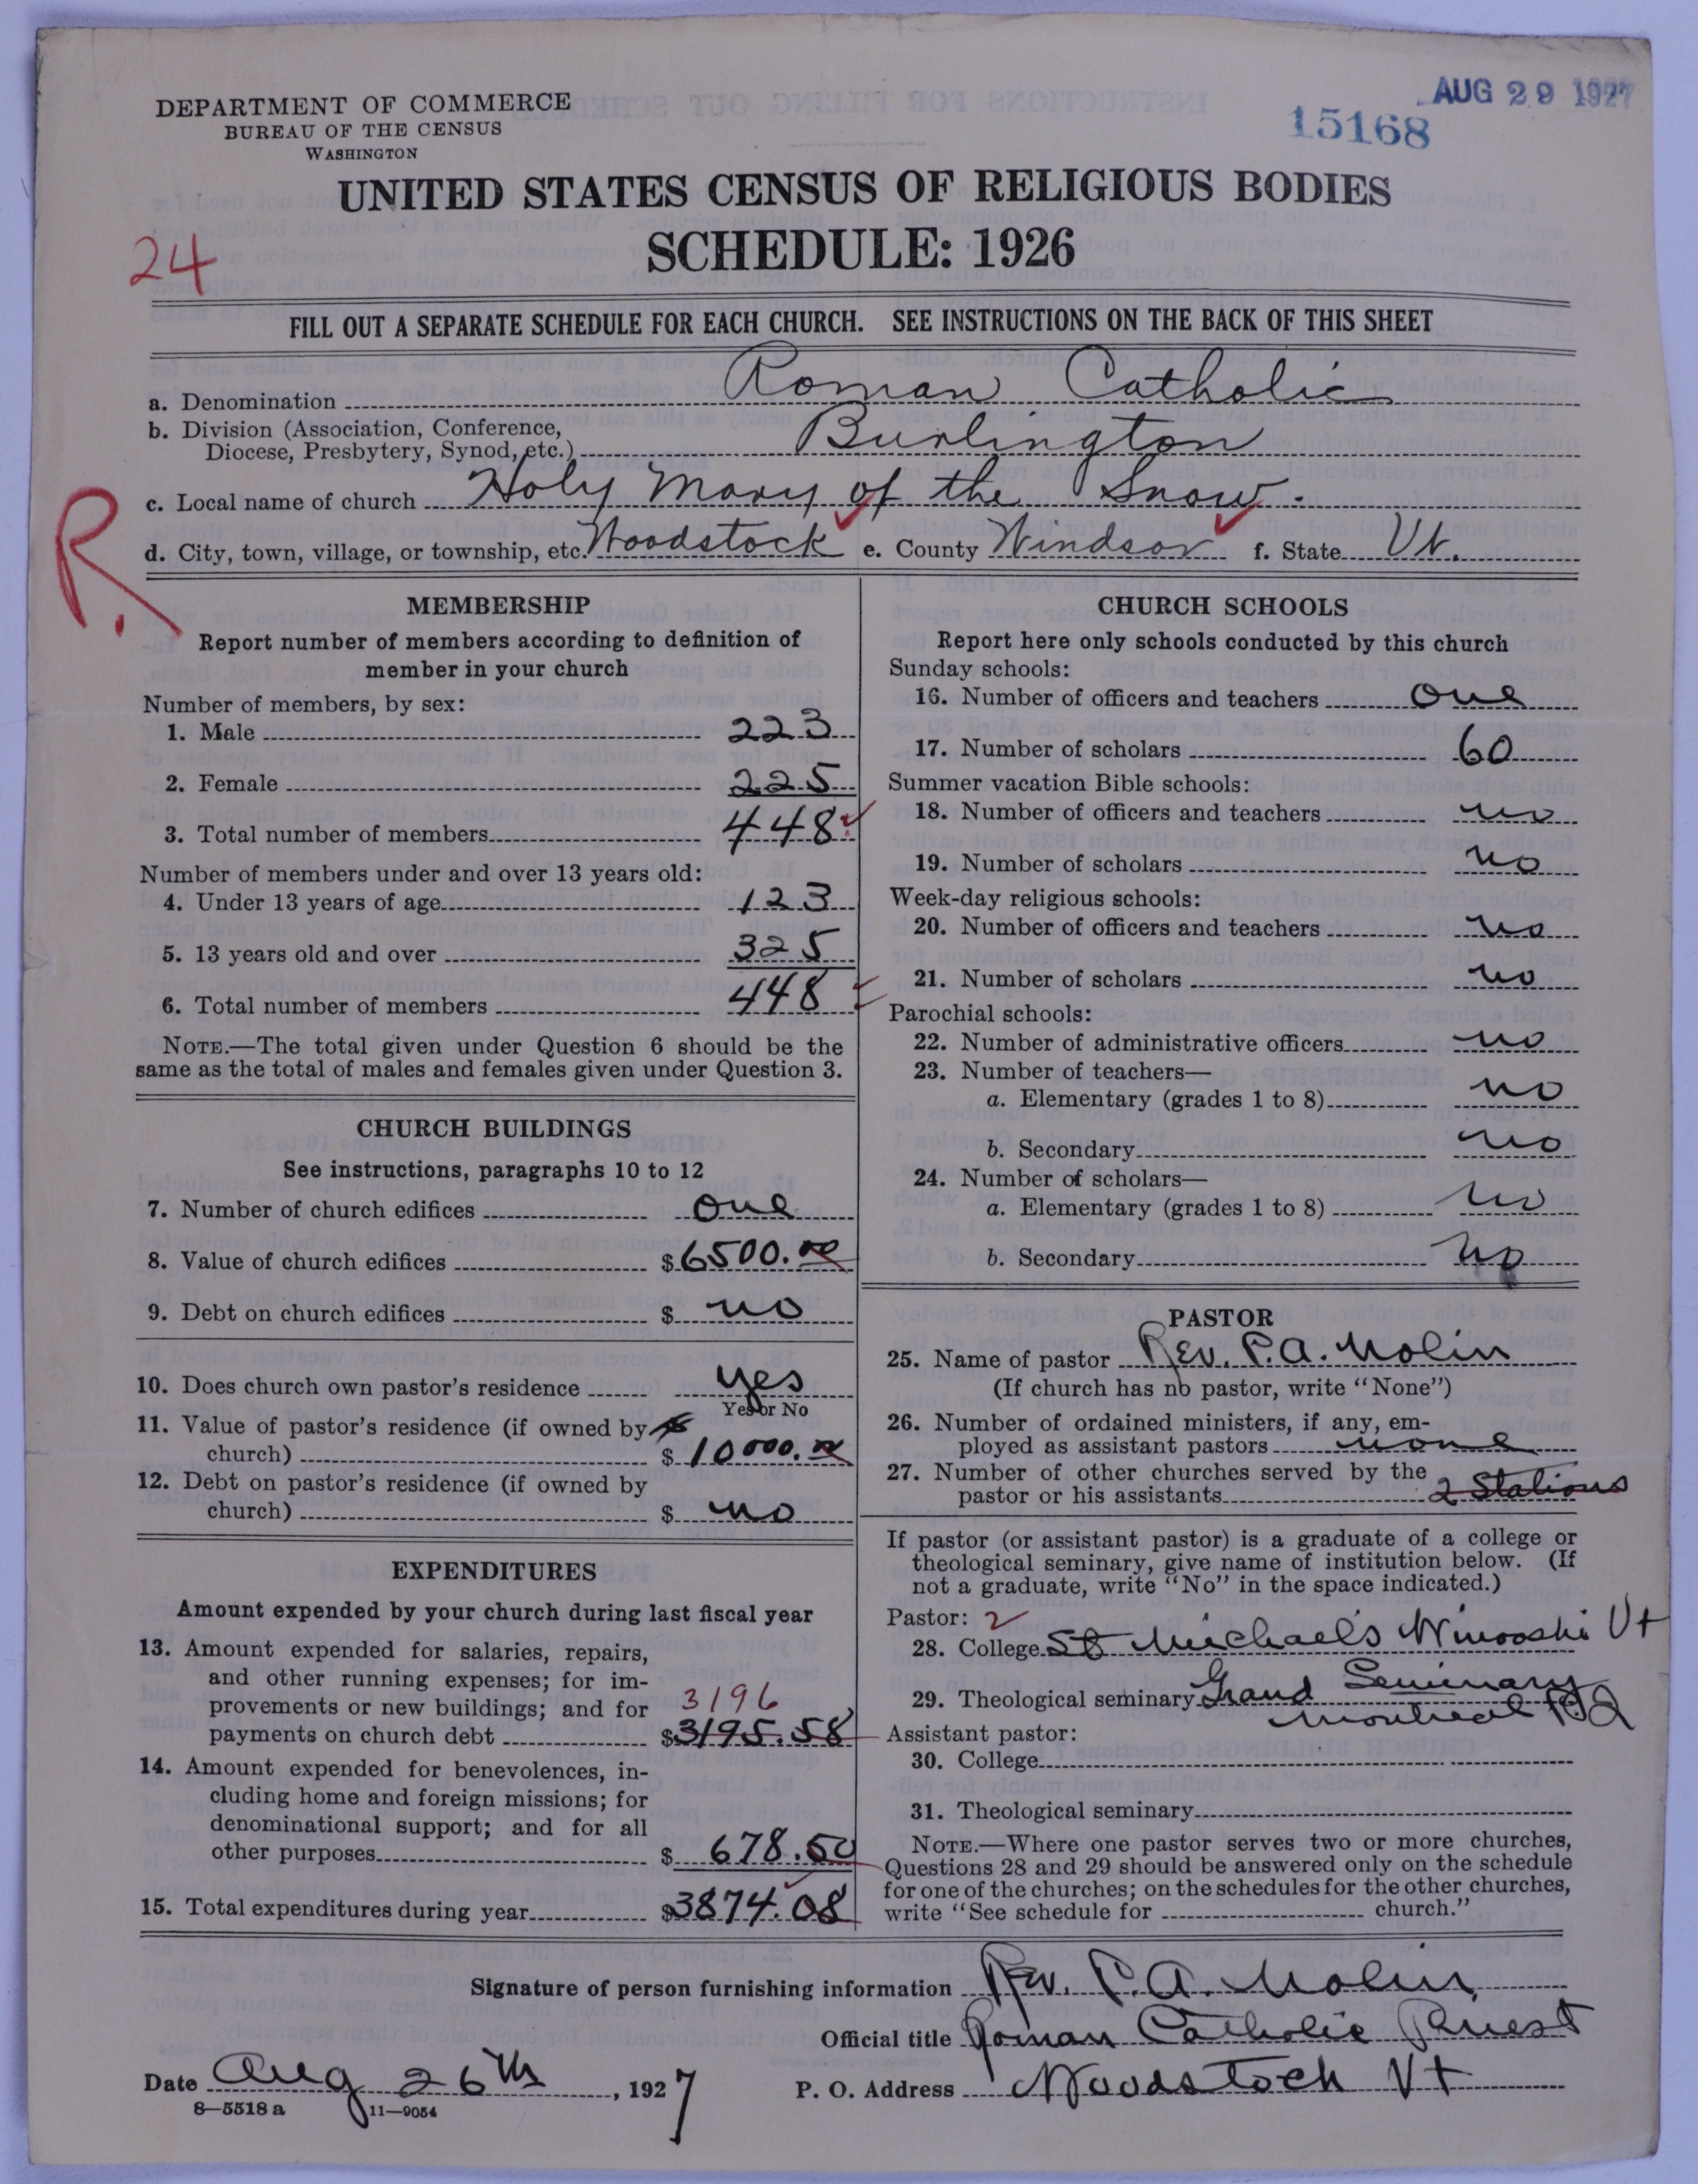 DEPARTMENT OF COMMERCE
BUREAU OF THE CENSUS
WASHINGTON
AUG 29 1927
15168
UNITED STATES CENSUS OF RELIGIOUS BODIES
SCHEDULE: 1926
24
FILL OUT A SEPARATE SCHEDULE FOR EACH CHURCH. SEE INSTRUCTIONS ON THE BACK OF THIS SHEET
a. Denomination Roman Catholic
b. Division (Association, Conference,
Diocese, Presbytery, Synod, etc.) Burlington
c. Local name of church Holy Mary of the Snow.
R.
d. City, town, village, or township, etc. Woodstock e. County Windsor f. State Vt.
MEMBERSHIP
Report number of members according to definition of
member in your church
Number of members, by sex:
1. Male 223
2. Female 225
3. Total number of members 448
Number of members under and over 13 years old:
4. Under 13 years of age 123
5. 13 years old and over 325
6. Total number of members 448
NOTE.—The total given under Question 6 should be the
same as the total of males and females given under Question 3.
CHURCH BUILDINGS
See instructions, paragraphs 10 to 12
7. Number of church edifices one
8. Value of church edifices $6500.00
9. Debt on church edifices $ no
10. Does church own pastor's residence yes
Yes or No
11. Value of pastor's residence (if owned by
church) $10000.00
12. Debt on pastor's residence (if owned by
church) $ no
EXPENDITURES
Amount expended by your church during last fiscal year
13. Amount expended for salaries, repairs,
and other running expenses; for im-
provements or new buildings; and for 3196
payments on church debt $3195.58
14. Amount expended for benevolences, in-
cluding home and foreign missions; for
denominational support; and for all
other purposes $ 678.50
15. Total expenditures during year $3874.08
CHURCH SCHOOLS
Report here only schools conducted by this church
Sunday schools:
16. Number of officers and teachers One
17. Number of scholars 60
Summer vacation Bible schools:
18. Number of officers and teachers no
19. Number of scholars no
Week-day religious schools:
20. Number of officers and teachers no
21. Number of scholars no
Parochial schools:
22. Number of administrative officers no
23. Number of teachers—
a. Elementary (grades 1 to 8) no
b. Secondary no
24. Number of scholars—
a. Elementary (grades 1 to 8) no
b. Secondary no
PASTOR
25. Name of pastor Rev. P.A. Nolin
(If church has no pastor, write "None")
26. Number of ordained ministers, if any, em-
ployed as assistant pastors none
27. Number of other churches served by the
pastor or his assistants 2 Stations
If pastor (or assistant pastor) is a graduate of a college or
theological seminary, give name of institution below. (If
not a graduate, write "No" in the space indicated.)
Pastor: 2
28. College St Michael's Winooski Vt
29. Theological seminary Grand Seminary
Montreal P Q
Assistant pastor:
30. College
31. Theological seminary
NOTE.—Where one pastor serves two or more churches,
Questions 28 and 29 should be answered only on the schedule
for one of the churches; on the schedules for the other churches,
write "See schedule for church."
Signature of person furnishing information Rev. P.A. Nolin
Official title Roman Catholic Priest
Date Aug 26th, 1927 P. O. Address Woodstock Vt
8—5518 a 11—9054